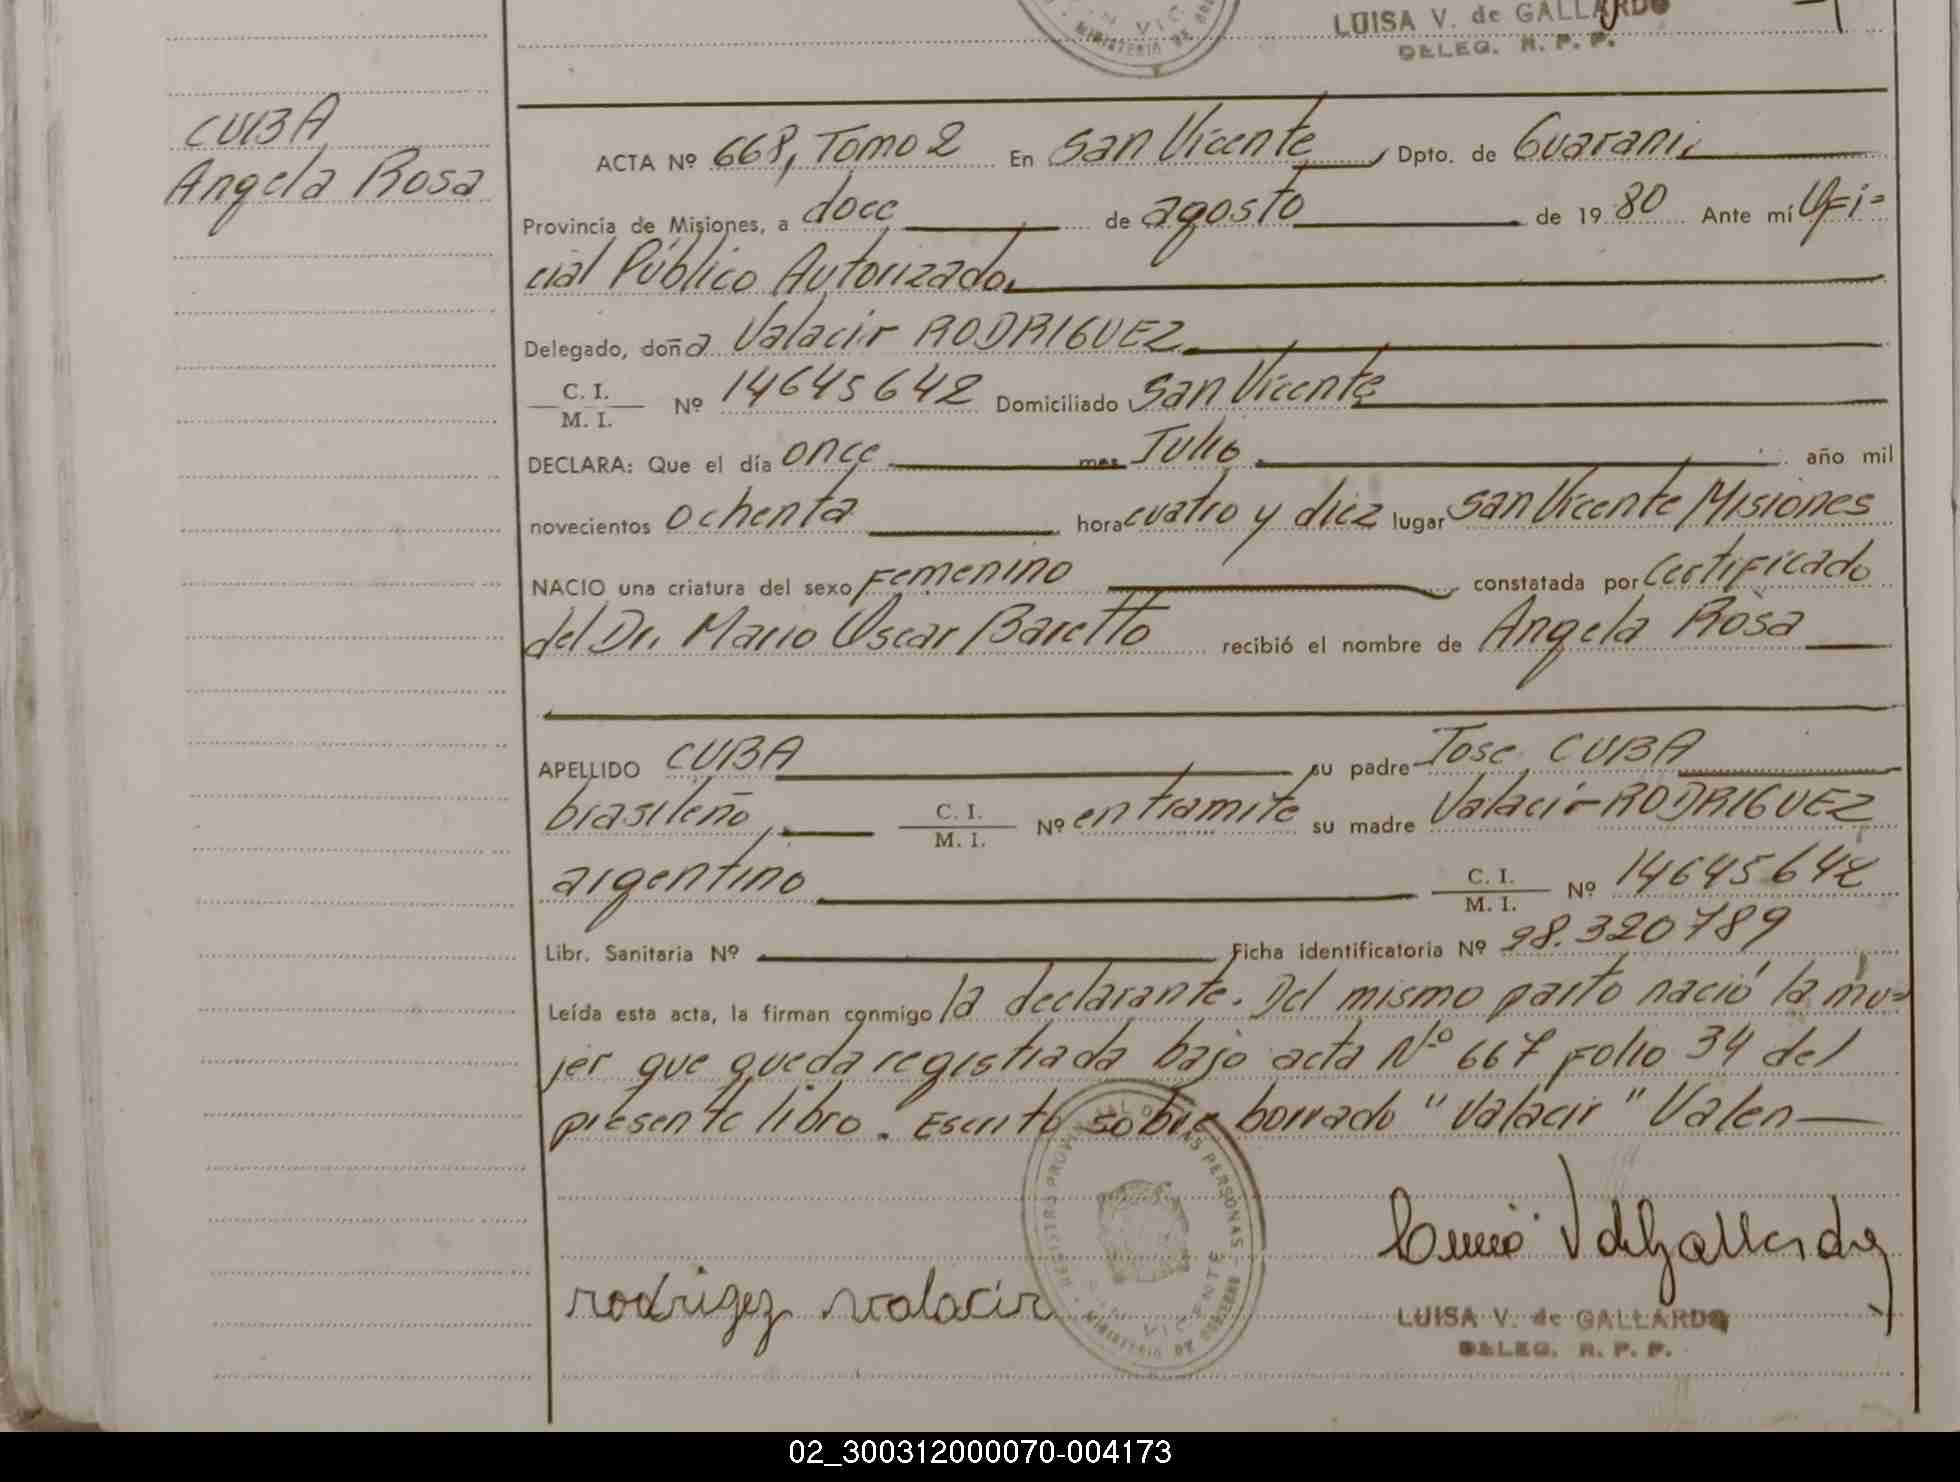 LUISA V. de GALLARDO
DELEG. R. P. P.
MINISTERIO DE
CUBA
Angela Rosa
ACTA Nº 668, Tomo 2 En San Vicente, Dpto. de Guaraní,
Provincia de Misiones, a doce de agosto de 1980 Ante mí Ofi=
cial Público Autorizado,
Delegado, doña Valacir RODRIGUEZ
C. I.
M. I. Nº 14645642 Domiciliado San Vicente
DECLARA: Que el día once mes Julio año mil
novecientos ochenta hora cuatro y diez lugar San Vicente Misiones
NACIO una criatura del sexo Femenino constatada por Certificado
del Dr. Mario Oscar Baretto recibió el nombre de Angela Rosa
APELLIDO CUBA su padre Jose CUBA
brasileño, C. I.
M. I. Nº en tramite su madre Valacir RODRIGUEZ
argentino C. I.
M. I. Nº 14645642
Libr. Sanitaria Nº Ficha identificatoria Nº 28.320789
Leída esta acta, la firman conmigo la declarante. Del mismo parto nació la mu=
jer que queda registrada bajo acta Nº 667 Folio 34 del
presente libro. Escrito sobre borrado "Valacir" Valen
rodrigez valacir
REGISTRO PROVINCIAL DE LAS PERSONAS
SAN VICENTE
MINISTERIO DE GOBIERNO
LUISA V. de GALLARDO
DELEG. R. P. P.
02_300312000070-004173